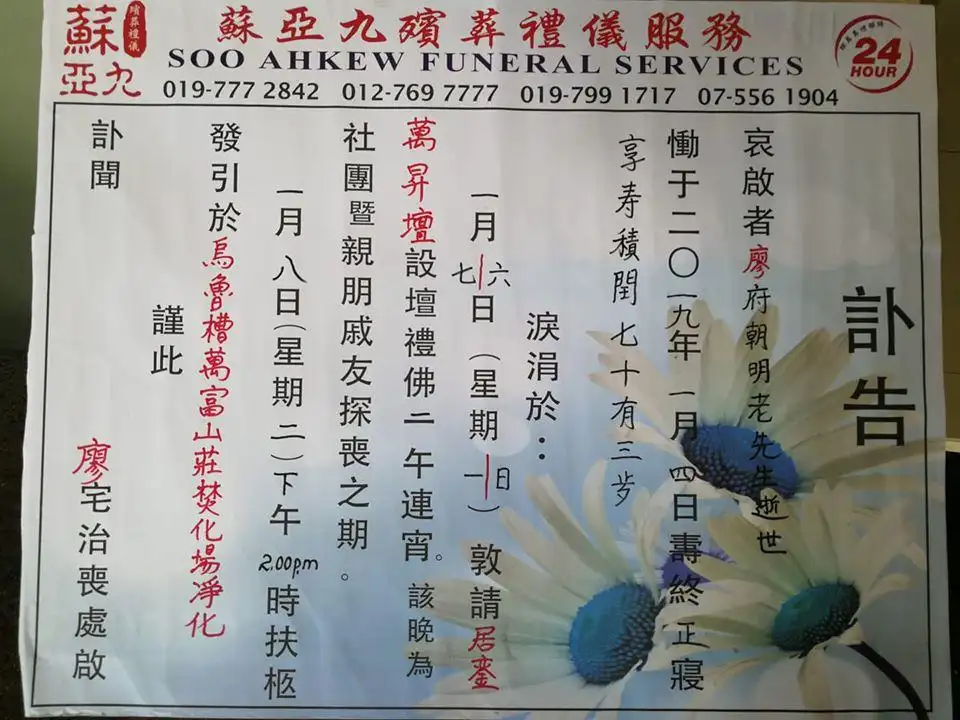 蘇亞九
殯葬禮儀
蘇亞九殯葬禮儀服務
SOO AHKEW FUNERAL SERVICES
019-777 2842 012-769 7777 019-799 1717 07-556 1904
24
HOUR
訃告
哀啟者廖府朝明老先生逝世
慟于二〇一九年一月四日壽終正寢
享寿積閏七十有三岁
淚涓於：
一月六|七日（星期日|一）敦請居鑾
萬昇壇設壇禮佛二午連宵。該晚為
社團暨親朋戚友探喪之期。
一月八日（星期二）下午2.00pm時扶柩
發引於烏魯槽萬富山莊焚化場净化
謹此
訃聞
廖宅治喪處啟